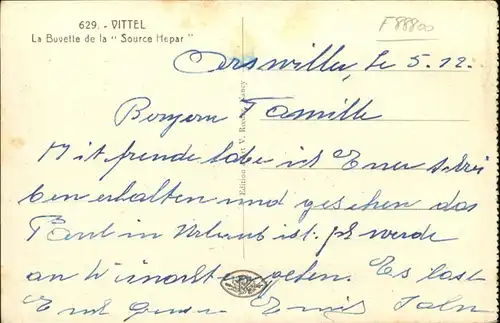 629. - VITTEL
La Buvette de la "Source Hepar"
F88800
le 5.12.
Famille
Mit freude habe ich Euer schrei
ben erhalten und gesehen das
Paul in Urlaub ist. Ich werde
an Weinachten gehen. Es last
Edition d'Art V. Nancy